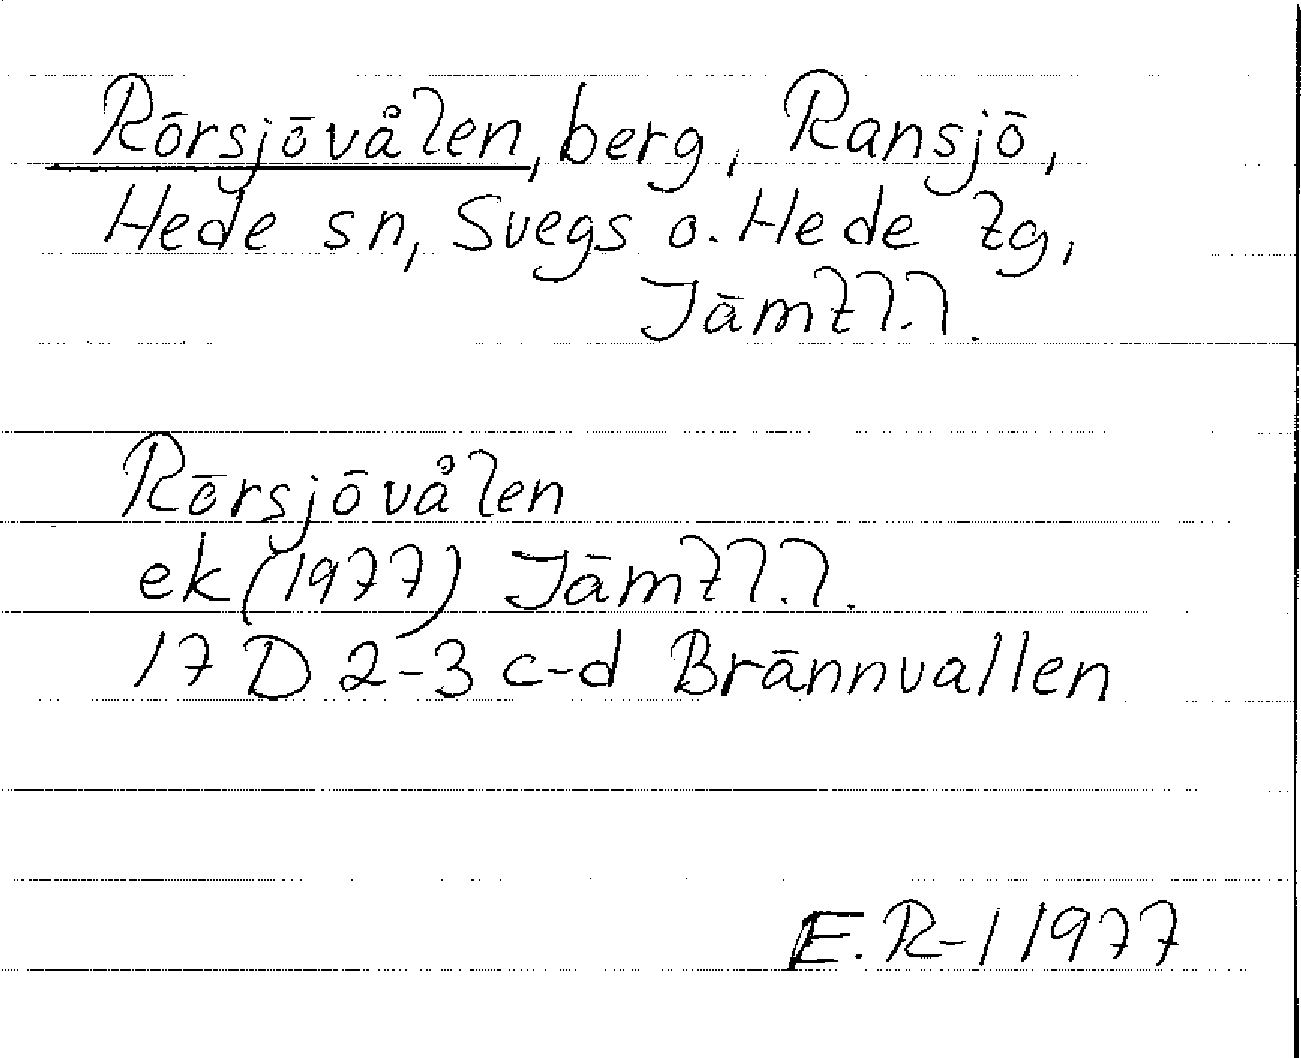 Rörsjövålen, berg, Ransjö,
Hede sn, Svegs o. Hede tg,
Jämtl.l.
Rörsjövålen
ek (1977) Jämtl.l.
17 D 2-3 c-d Brännvallen
E. R-l 1977